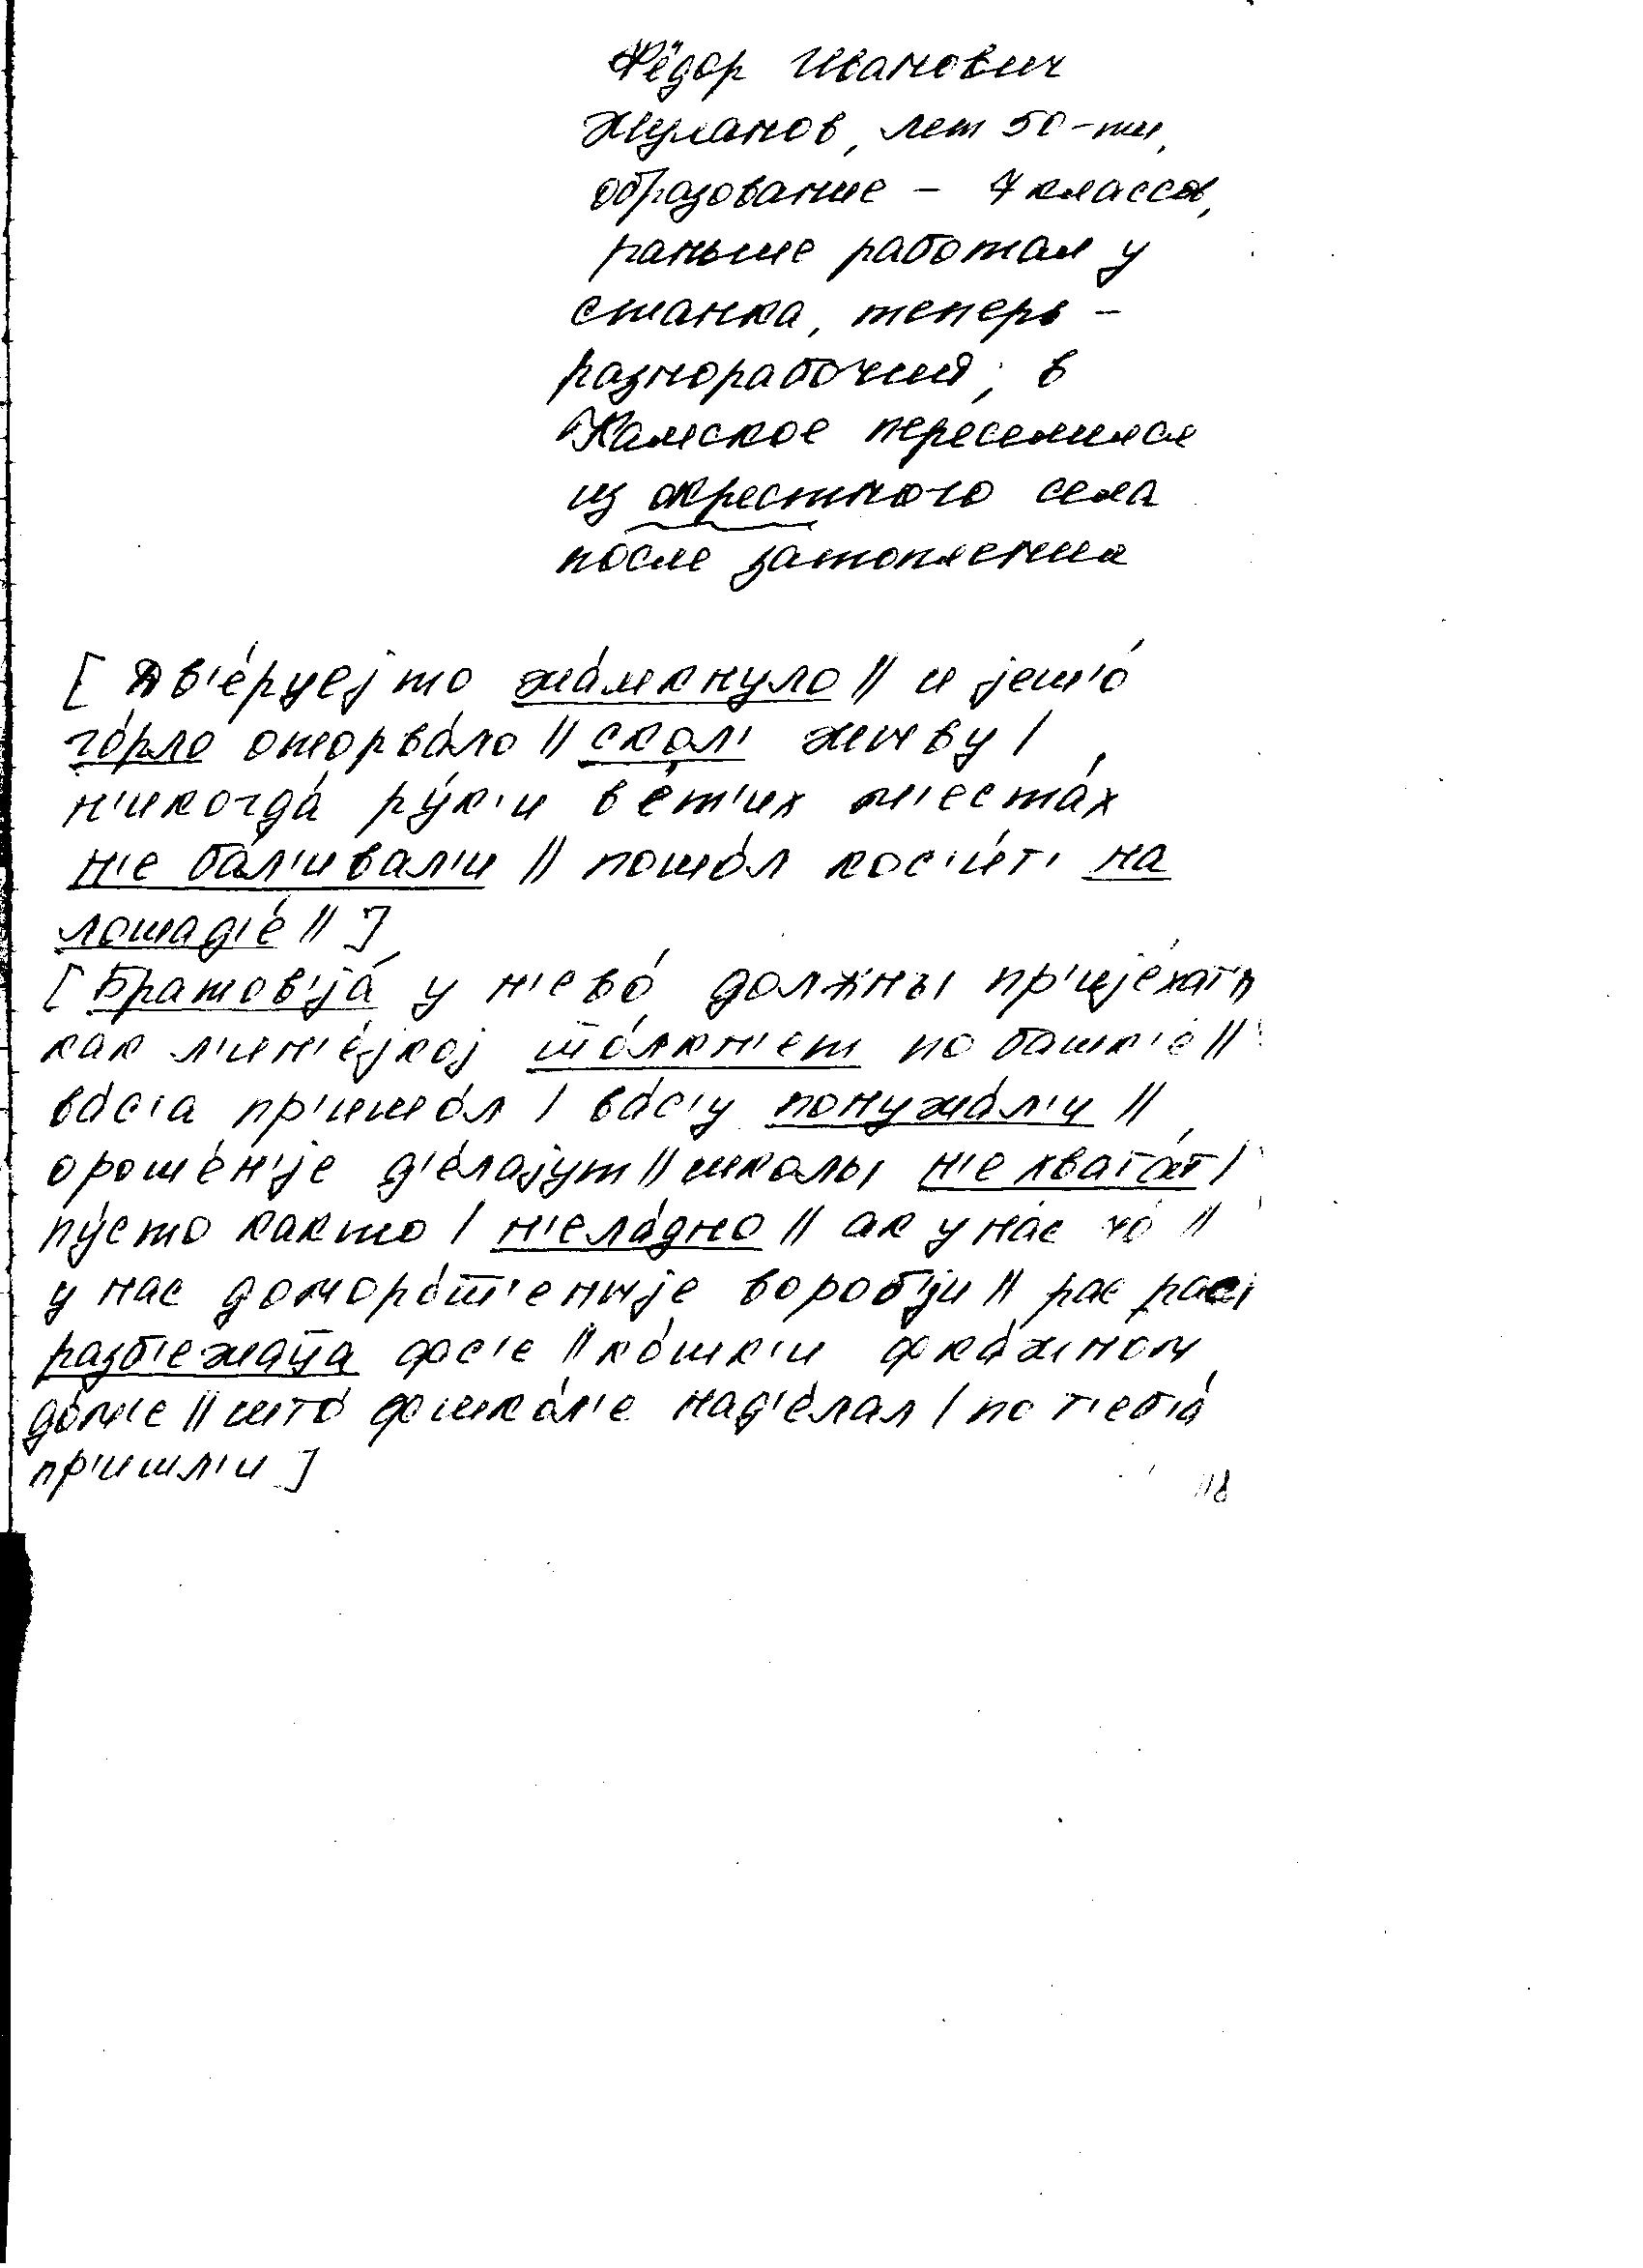 Фёдор Иванович
Жуланов, лет 50-ти,
образование – 7 классов,
раньше работал у
станка, теперь –
разнорабочий; в
Камское переселился
из окрестного села
после затопления
[ Дв'е́руеј то жа́мкнуло // и јешо́
го́рло оторва́ло // скол' живу /
н'икогда́ ру́к'и в е́т'их м'еста́х
н'е ба́л'ивал'и // пошо́л кос'и́т' на
лошад'е́ // ]
[ Братов'ја́ у н'ево́ должны пр'ије́хат'
как л'ин'е́јкој то́лкн'ет по башк'е́ //
ва́с'а пр'ишо́л / ва́с'у понужа́л'и //
ороше́н'је д'е́лајут // школы н'е хвата́т /
пу́сто както / н'ела́дно // ак у на́с чо́ //
у нас доморо́ш'еныје вороб'ји // рас рас
разб'ежаца фс'е // ко́шк'и фка́жном
до́м'е // што́ фшко́л'е над'е́лал / по т'еб'а́
пр'ишл'и ]
118